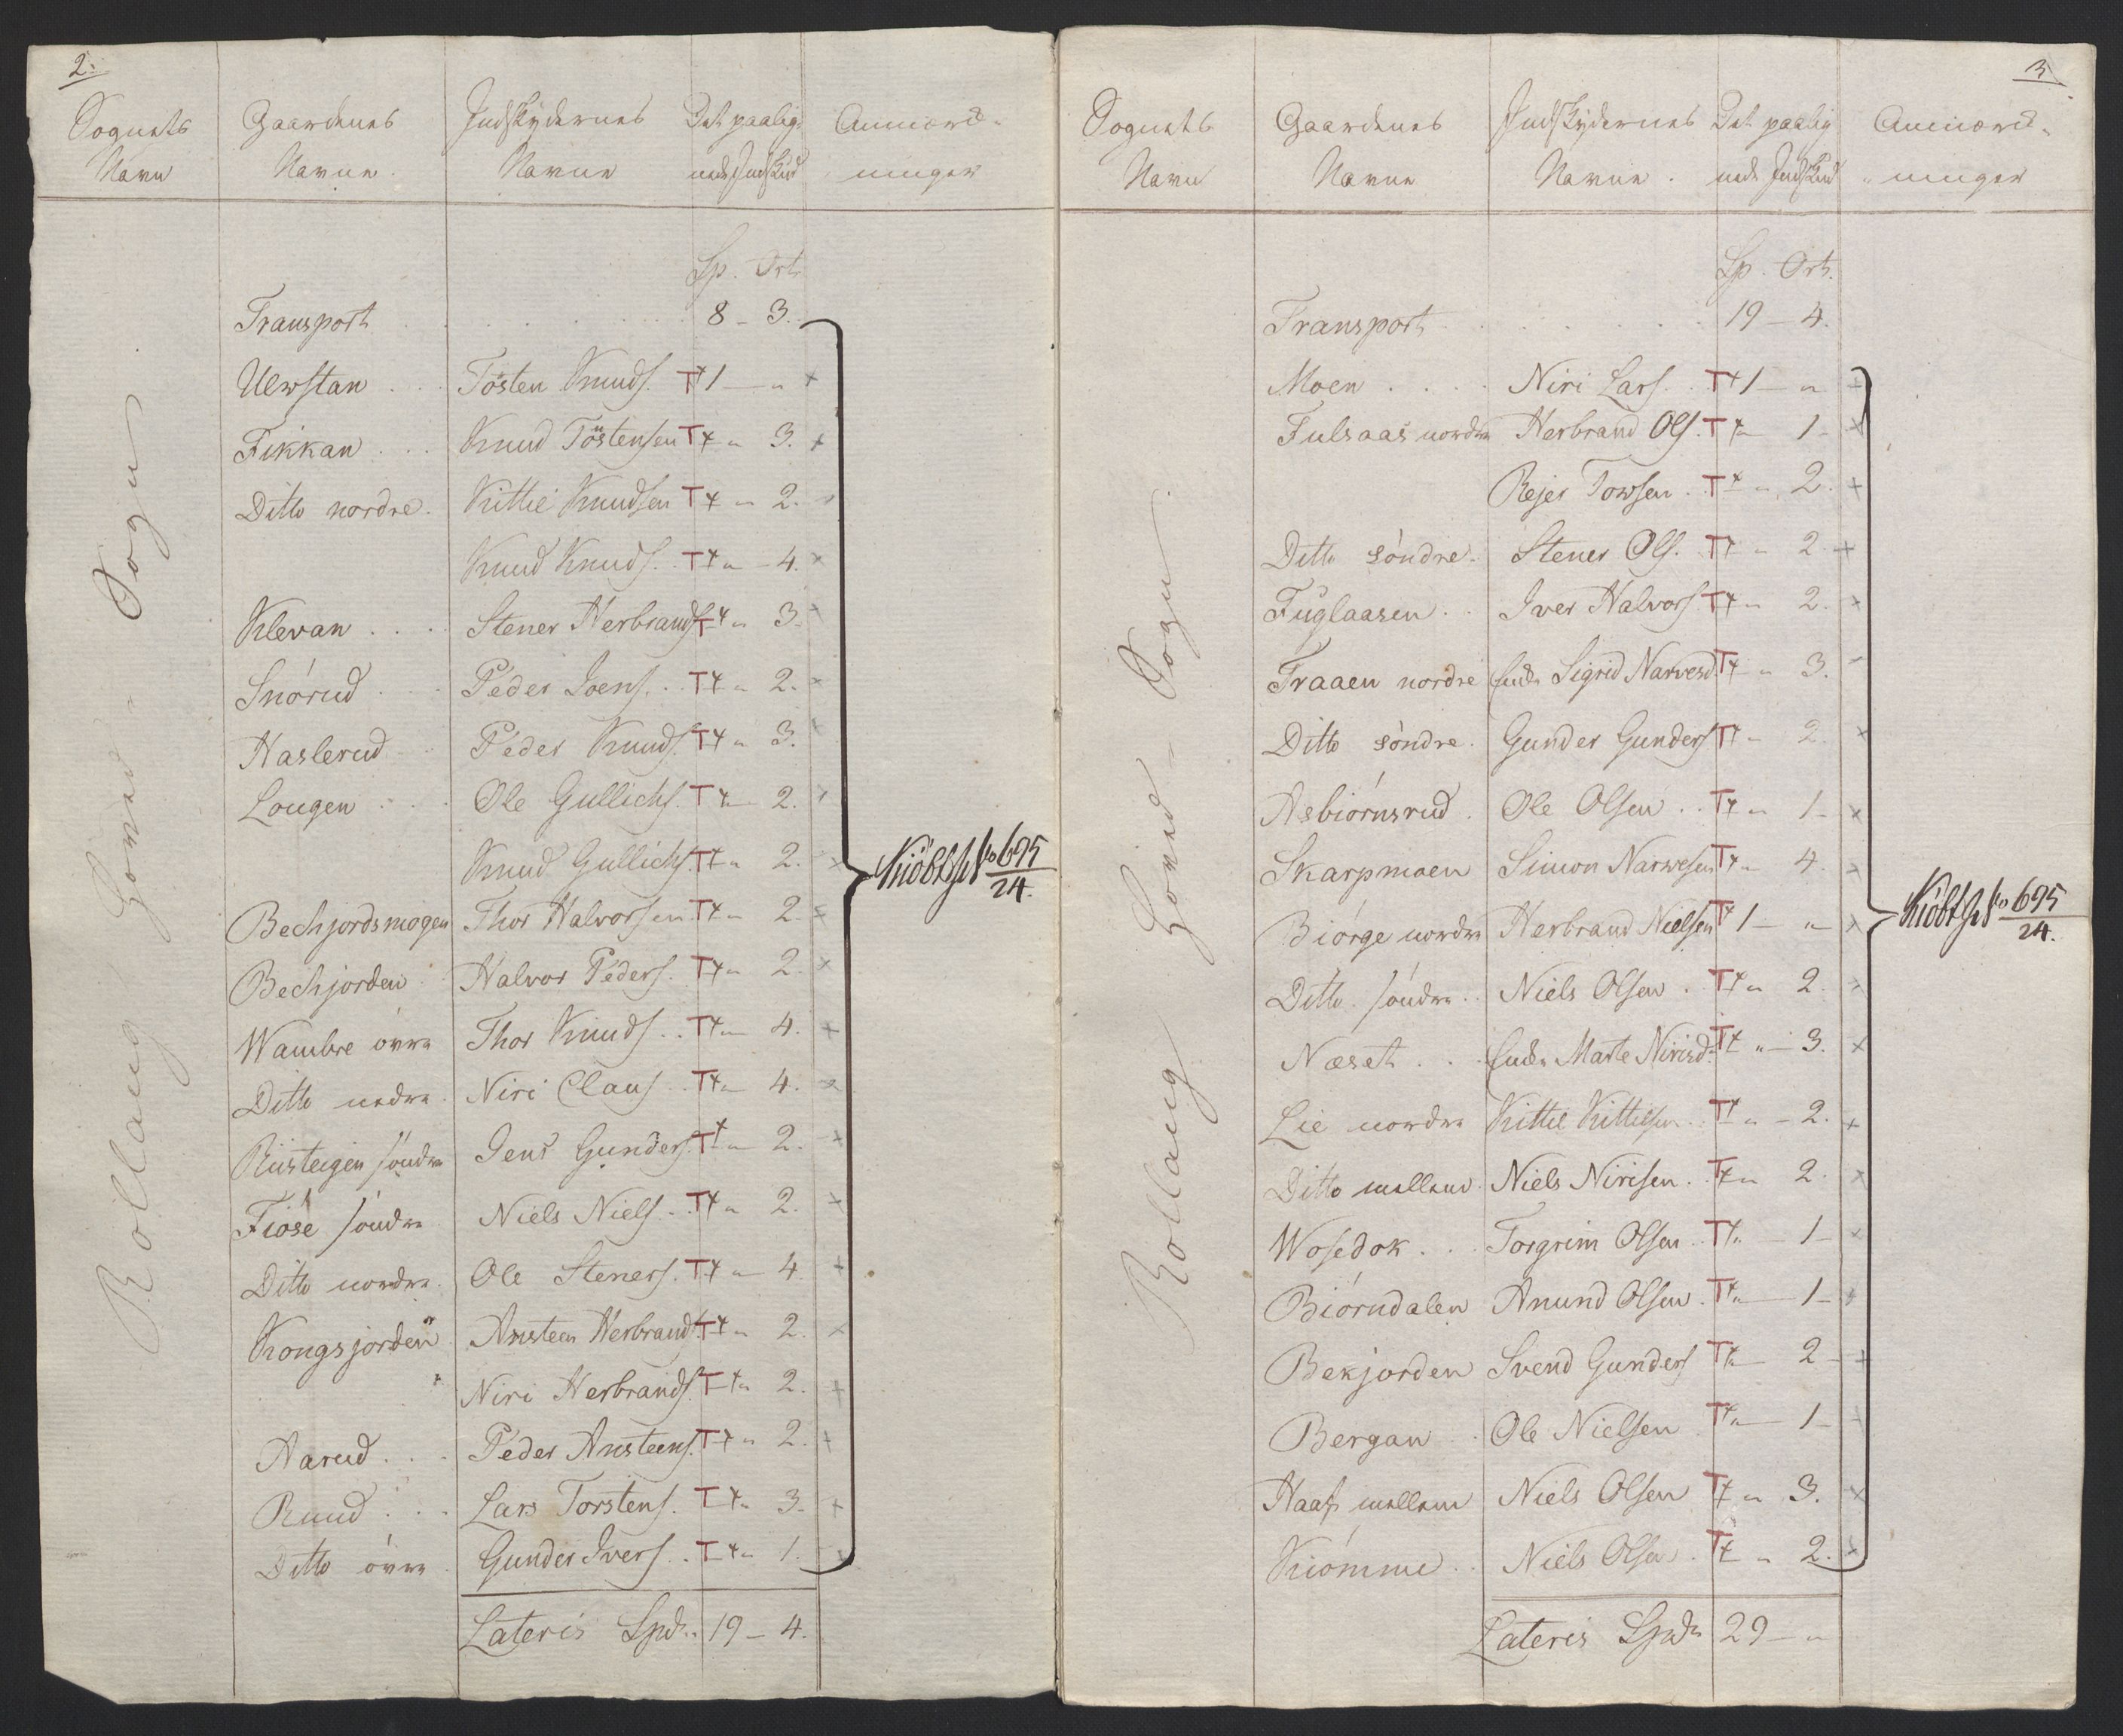 2.
Sognets Gaardenes Indskydernes Det paalig- Anmærk-
Navn Navne. Navne nede Indskud ninger
Sp. Ort.
Rollaug Hoved-Sogn
Transport 8 - 3.
Ulvstan Tösten Knuds. T+ 1 - " +
Fikkan Knud Töstensen T+ " 3. +
Ditto nordre. Kittil Knudsen T+ " 2. +
Knud Knuds. T+ " - 4. +
Klevan Stener Herbrands T+ " 3. +
Snörud Peder Joens. T+ " 2. +
Haslerud Peder Knuds. T+ " 3. +
Lougen Ole Gullichs. T+ " 2. +
Knud Gullichs. T+ " 2. +
Bechjordsmogen Thor Halvorsen T+ " 2. +
Bechjorden Halvor Peders. T+ " 2. +
Wambre övre Thor Knuds. T+ " 4. +
Ditto nedre Niri Claus. T+ " 4. +
Rusteigen söndre Jens Gunders. T+ " 2. +
Fiöse söndre Niels Niels. T+ " 2. +
Ditto nordre. Ole Steners. T+ " 4. +
Kongsjorden Ansteen Herbrands. T+ " 2. +
Niri Herbrands. T+ " 2. +
Aarud Peder Ansteens. T+ " 2. +
Ruud Lars Torstens. T+ " 3. +
Ditto övre Gunder Ivers. T+ " 1. +
Lateris Spd. 19 - 4.
695
24.
3
Sognets Gaardenes Indskydernes Det paalig Anmærk-
Navn Navne Navne. nede Indskud ninger
Sp. Ort.
Rollaug Hoved-Sogn
Transport 19 - 4.
Moen Niri Lars. T+ 1 - " +
Fulsaas nordre Herbrand Ols. T+ " 1 - +
Rejer Towsen. T+ " 2. +
Ditto söndre. Stener Ols. T+ " 2 +
Fuglaasen Iver Halvors. T+ " 2. +
Fraaen nordre Enke Sigrid Narvesd. T+ " 3.
Ditto söndre. Gunder Gunders T+ " 2. +
Asbiörnsrud Ole Olsen T+ " 1 - +
Skarpmoen Simon Narvesen T+ " 4. +
Biörge nordre Herbrand Nielsen T+ 1 - " +
Ditto söndre Niels Olsen T+ " 2. +
Næset Enke Marte Nirisd. T+ " - 3. +
Lie nordre Kittil Kittilsen T+ " - 2. +
Ditto mellem Niels Nirisen T+ " 2. +
Wosedok Torgrim Olsen T+ " 1 - +
Biörndalen Anund Olsen T+ " 1 - +
Bekjorden Svend Gunders T+ " 2 - +
Bergan Ole Nielsen T+ " 1 - +
Haaf mellem Niels Olsen T+ " 3. +
Kiömme Niels Olsen T+ " 2. +
Lateris Spd. 29 - "
695
24.